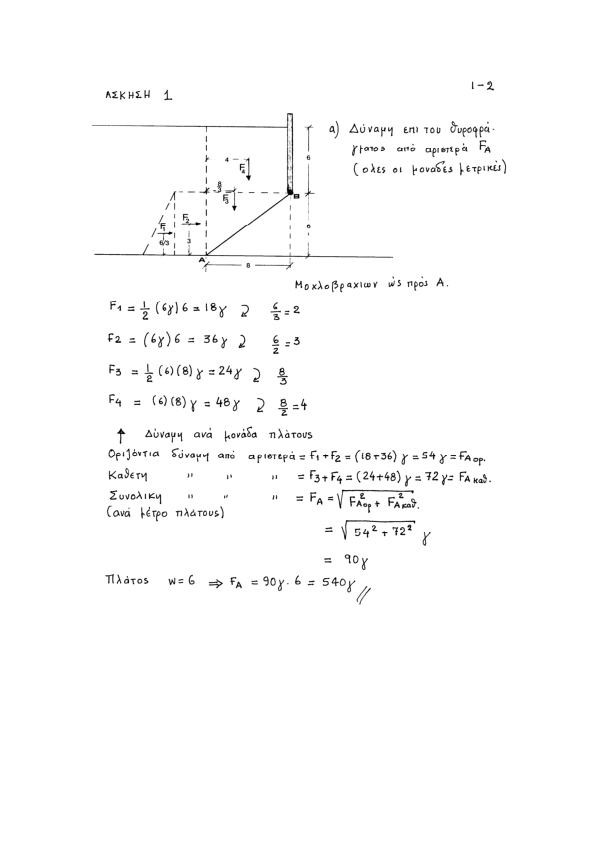 1-2
ΑΣΚΗΣΗ 1
α) Δύναμη επι του θυροφρά-
γματος από αριστερά FA
(όλες οι μονάδες μετρικές)
4
F4
6
8/3
F3
B
F1
F2
6/3
3
6
A
8
Μοχλοβραχίων ώς πρός Α.
F1 = 1/2 (6γ) 6 = 18γ 6/3 = 2
F2 = (6γ) 6 = 36γ 6/2 = 3
F3 = 1/2 (6)(8) γ = 24γ 8/3
F4 = (6)(8) γ = 48γ 8/2 = 4
↑ Δύναμη ανά μονάδα πλάτους
Οριζόντια δύναμη από αριστερά = F1 + F2 = (18+36) γ = 54 γ = FAορ.
Κάθετη " " " = F3 + F4 = (24+48) γ = 72γ = FAκαθ.
Συνολική " " " = FA = √(F²Αορ + F²Ακαθ.
(ανά μέτρο πλάτους)
= √(54² + 72²) γ
= 90γ
Πλάτος w = 6 ⇒ FA = 90γ · 6 = 540γ //